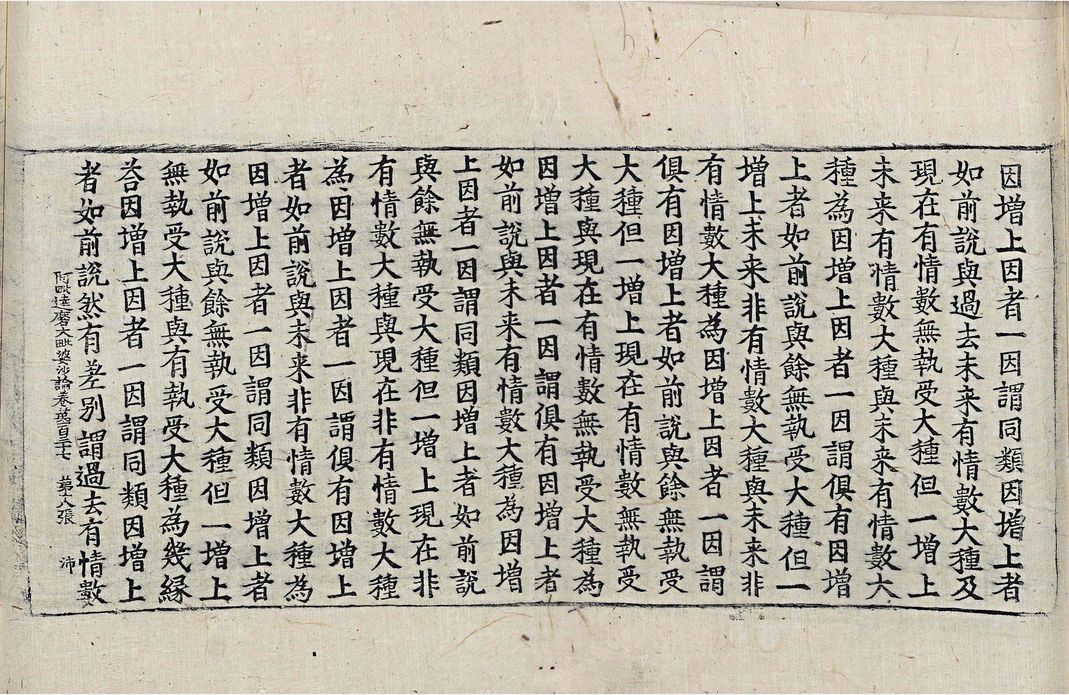 因增上因者一因謂同類因增上者
如前說與過去未来有情數大種及
現在有情數無執受大種但一增上
未来有情數大種與未来有情數大
種為因增上因者一因謂俱有因增
上者如前說與餘無執受大種但一
增上未来非有情數大種與未来非
有情數大種為因增上因者一因謂
俱有因增上者如前說與餘無執受
大種但一增上現在有情數無執受
大種與現在有情數無執受大種為
因增上因者一因謂俱有因增上者
如前說與未来有情數大種為因增
上因者一因謂同類因增上者如前說
與餘無執受大種但一增上現在非
有情數大種與現在非有情數大種
為因增上因者一因謂俱有因增上
者如前說與未来非有情數大種為
因增上因者一因謂同類因增上者
如前說與餘無執受大種但一增上
無執受大種與有執受大種為幾緣
荅因增上因者一因謂同類因增上
者如前說然有差別謂過去有情數
阿毗達磨大毗婆沙論卷苐一百三十七 苐六張 沛